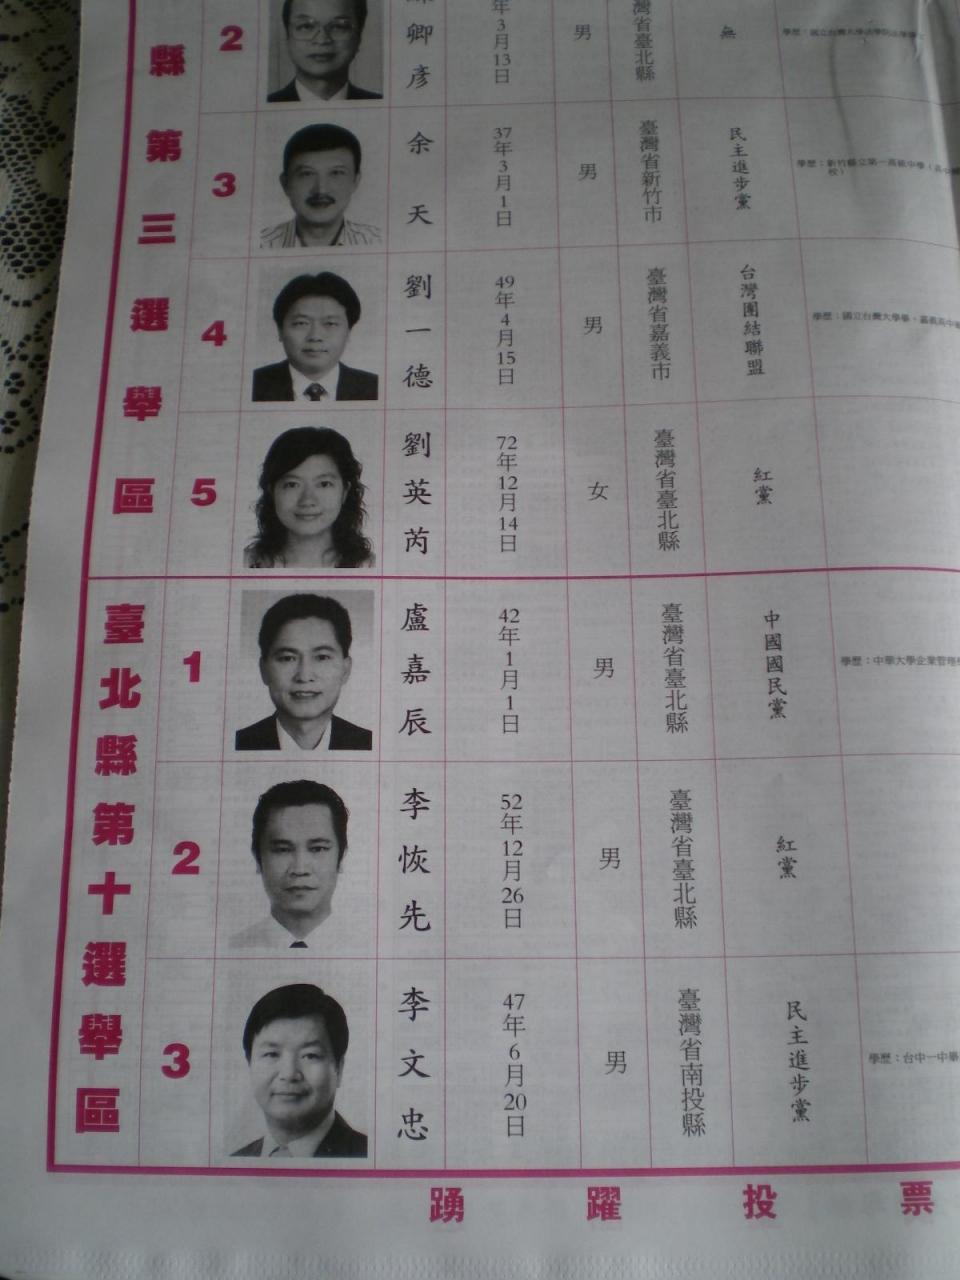 縣第三選舉區
2
卿彥
年3月13日
男
灣省臺北縣
無
3
余天
37年3月1日
男
臺灣省新竹市
民主進步黨
學歷：新竹縣立第一高級中學（高中
校）
4
劉一德
49年4月15日
男
臺灣省嘉義市
台灣團結聯盟
學歷：國立台灣大學畢、嘉義高中畢
5
劉英芮
72年12月14日
女
臺灣省臺北縣
紅黨
臺北縣第十選舉區
1
盧嘉辰
42年1月1日
男
臺灣省臺北縣
中國國民黨
學歷：中華大學企業管理
2
李恢先
52年12月26日
男
臺灣省臺北縣
紅黨
3
李文忠
47年6月20日
男
臺灣省南投縣
民主進步黨
學歷：台中一中畢
踴躍投票